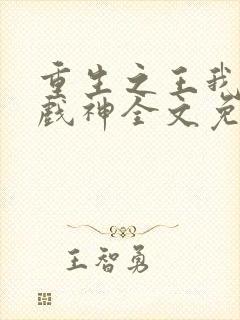 重生之王我
戲神全文免
王智勇